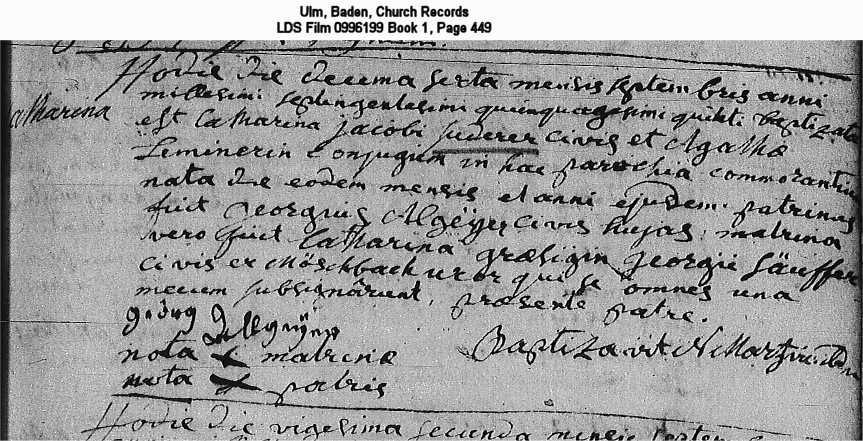 Ulm, Baden, Church Records
LDS Film 0996199 Book 1, Page 449
Hodie die decima sexta mensis septembris anni
millesimi septingentesimi quinquagesimi quinti baptizata
Catharina
est Catharina Jacobi Suderer civis et Agathæ
Leminerin conjugum in hac parochia commorantium
nata die eodem mensis et anni ejusdem. patrinus
fuit Georgius Algeyer civis hujas; matrina
vero fuit Catharina græsigin Georgii Säuffer
civis ex Möschbach uxor qui se omnes una
mecum subsignârunt, præsente patre.
nota X matrinæ
Baptizavit
nota X patris
Hodie die vigesima secunda mensis